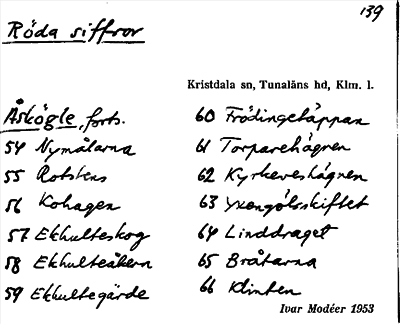 139
Röda siffror
Kristdala sn, Tunaläns hd, Klm. l.
Åskögle, forts.
54 Nymålarna
55 Rotstens
56 Kohagen
57 Ekhulteskog
58 Ekhulteåkern
59 Ekhultegärde
60 Frödingetäppan
61 Torparehagren
62 Kyrkeveshagnen
63 Yxengölsskiftet
64 Linddraget
65 Bråtarna
66 Klinten
Ivar Modéer 1953